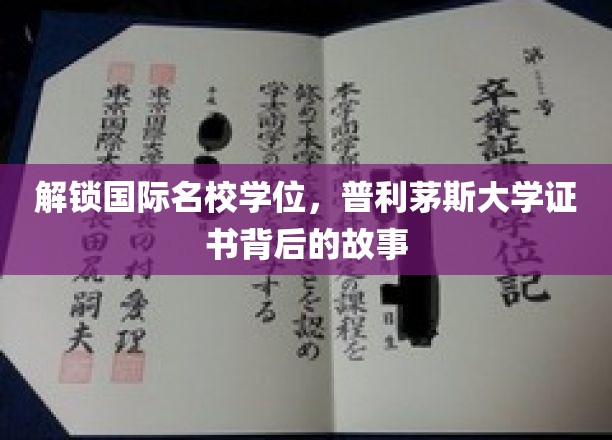 解锁国际名校学位，普利茅斯大学证
书背后的故事
第 号
卒業証書 学位記
本学商学部 定の課程を
修めて本学 ことを認め
学士(商学)の学 する
平成
東京国際大学商 田村愛理
東京国際大学 長田尻嗣夫